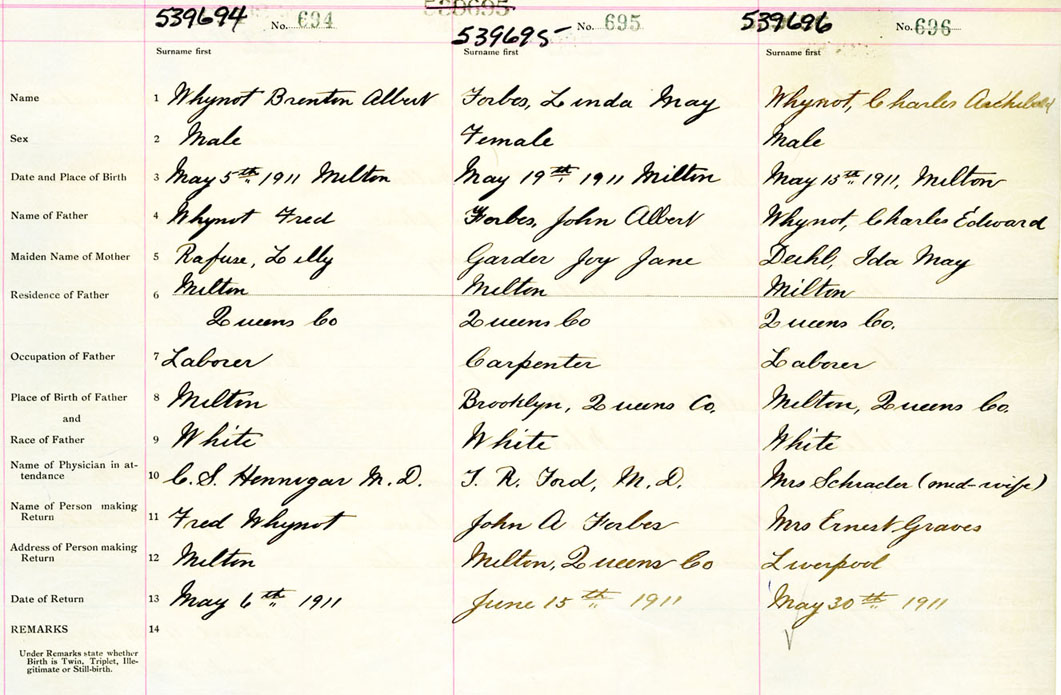 539695
539694 No. 694 539695 No. 695 539696 No. 696
Surname first Surname first Surname first
Name 1 Whynot Brenton Albert Forbes, Linda May Whynot, Charles Archibald
Sex 2 Male Female Male
Date and Place of Birth 3 May 5th 1911 Milton May 19th 1911 Milton May 15th 1911, Milton
Name of Father 4 Whynot Fred Forbes, John Albert Whynot, Charles Edward
Maiden Name of Mother 5 Rafuse, Lilly Garder Joy Jane Deihl, Ida May
Residence of Father 6 Milton Milton Milton
Queens Co Queens Co Queens Co.
Occupation of Father 7 Laborer Carpenter Laborer
Place of Birth of Father 8 Milton Brooklyn, Queens Co. Milton, Queens Co.
and
Race of Father 9 White White White
Name of Physician in at-
tendance 10 C. S. Hennigar M.D. T. R. Ford, M.D. Mrs Schrader (mid-wife)
Name of Person making
Return 11 Fred Whynot John A Forbes Mrs Ernest Graves
Address of Person making
Return 12 Milton Milton, Queens Co Liverpool
Date of Return 13 May 6th 1911 June 15th 1911 May 30th 1911
REMARKS 14
Under Remarks state whether
Birth is Twin, Triplet, Ille-
gitimate or Still-birth.